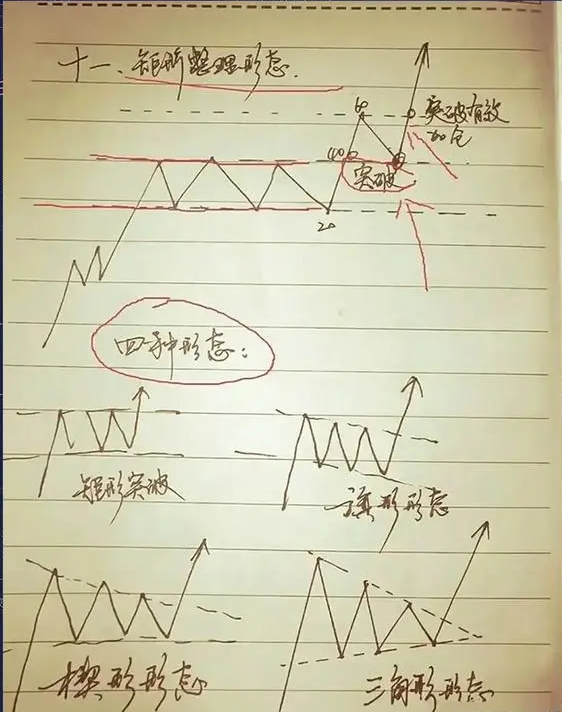 十一、矩形整理形态.
60
突破有效
加仓
40
突破
20
四种形态:
矩形突破
旗形形态
楔形形态
三角形形态